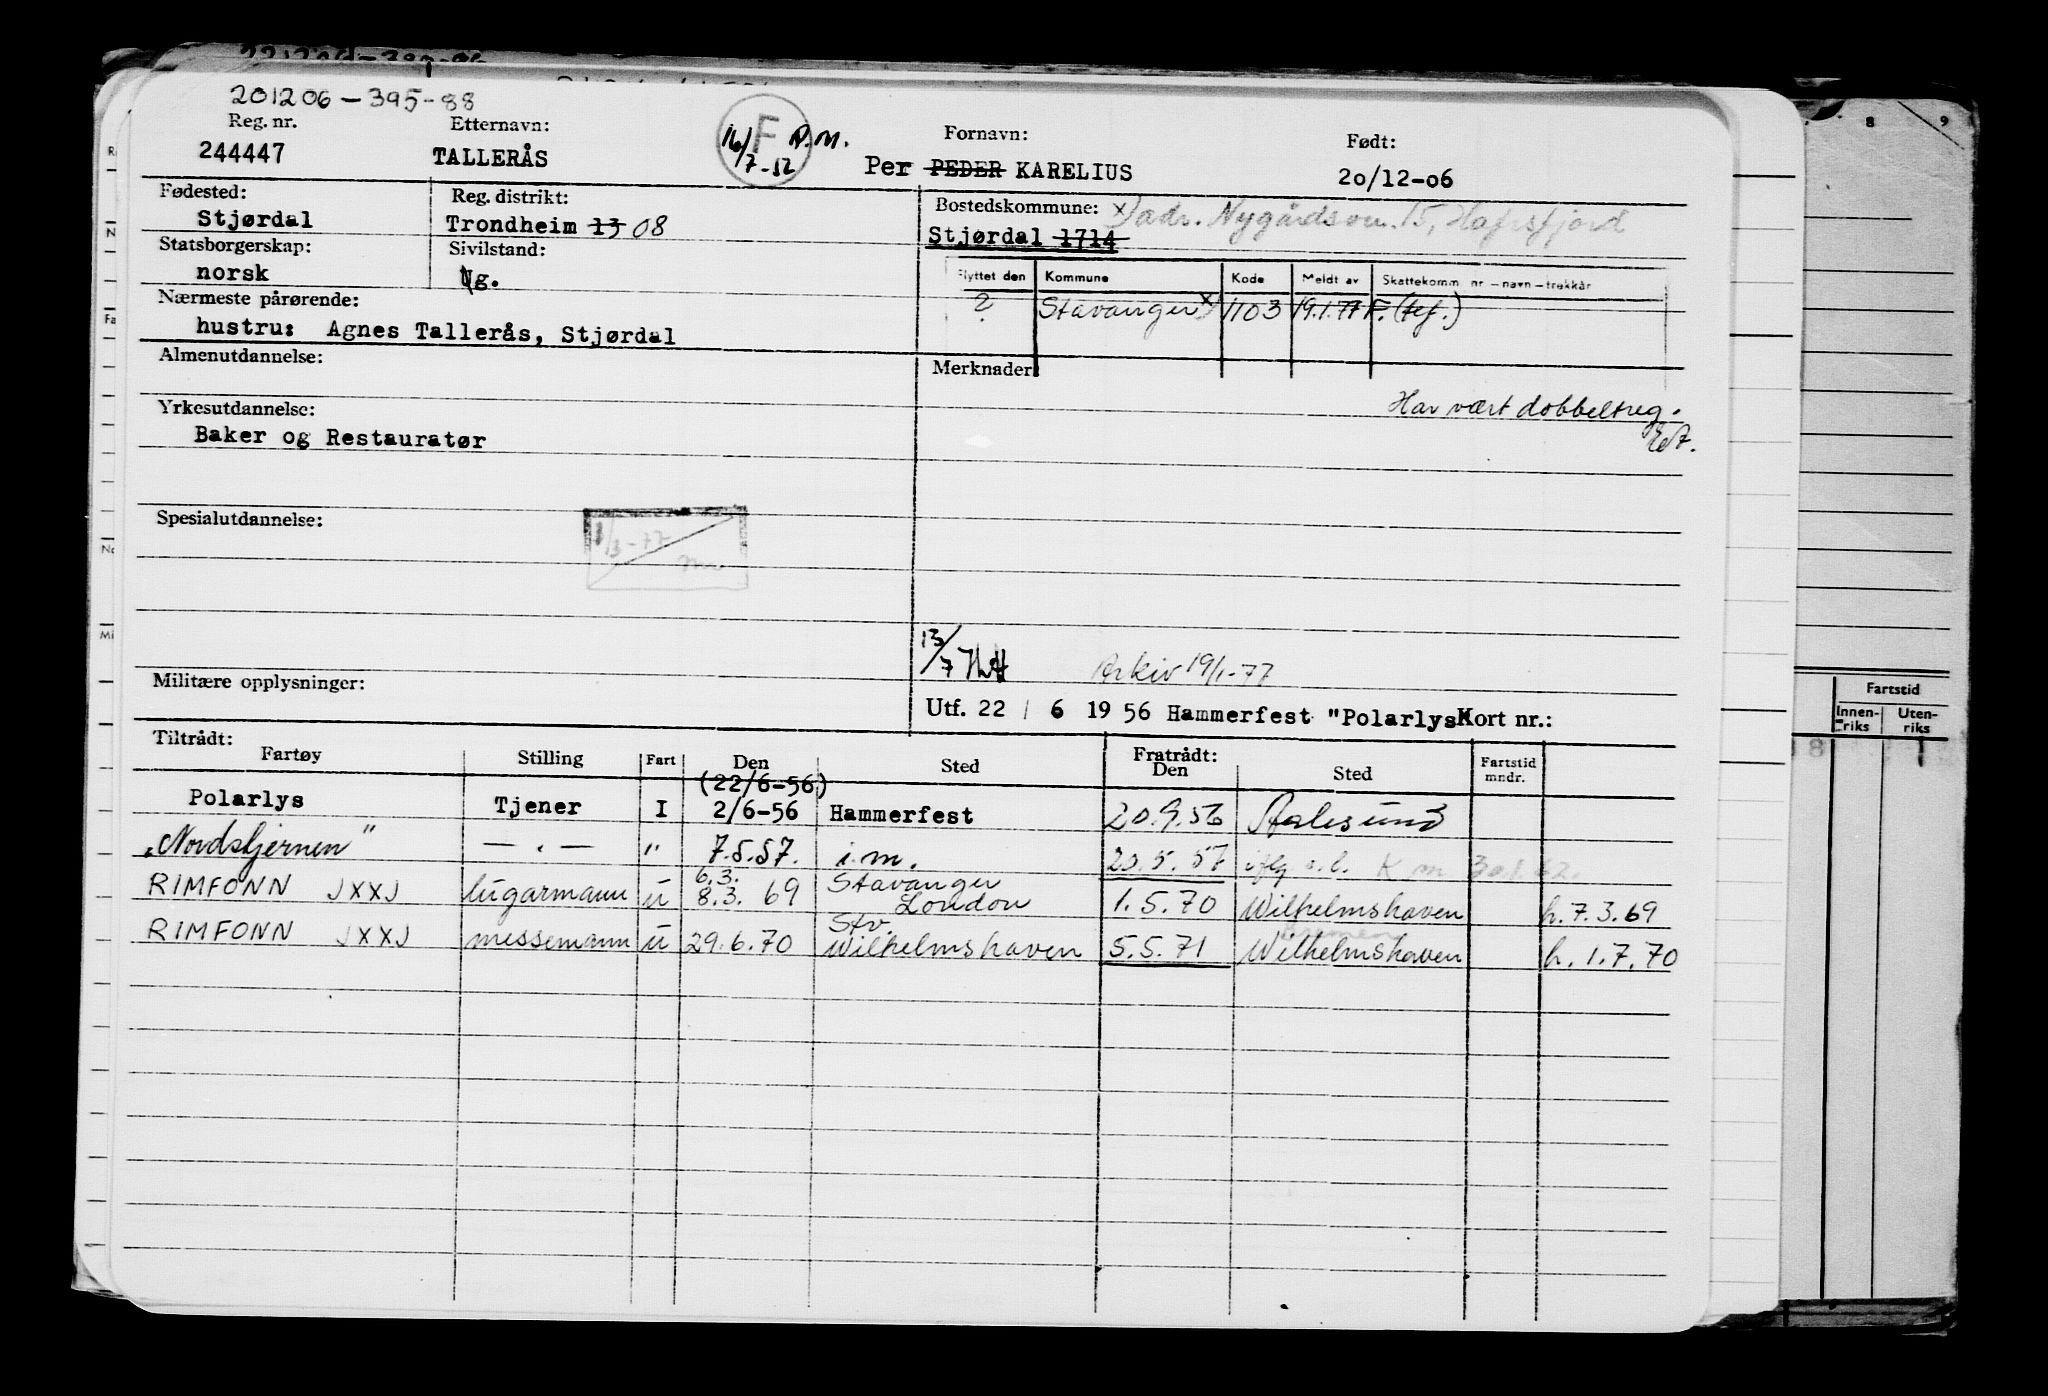 201206-395-88
Reg. nr. Etternavn: Fornavn: Født:
244447 TALLERÅS 16/7-52 F R.M. Per PEDER KARELIUS 20/12-06
Fødested: Reg. distrikt: Bostedskommune: x) adr. Nygårdsvn. 15, Hafrsfjord
Stjørdal Trondheim 13 08 Stjørdal 1714
Statsborgerskap: Sivilstand:
norsk Ug.
Flyttet den Kommune Kode Meldt av Skattekomm nr – navn – trekkår
? Stavanger x) 1103 19.1.77 F. (tef.)
Nærmeste pårørende:
hustru: Agnes Tallerås, Stjørdal
Almenutdannelse: Merknader:
Har vært dobbeltreg.
Yrkesutdannelse:
Baker og Restauratør
Spesialutdannelse:
/3-77
13/7
Arkiv 19/1-77
Militære opplysninger:
Utf. 22 / 6 19 56 Hammerfest "Polarlys" Kort nr.:
Tiltrådt: Fratrådt:
Fartøy Stilling Fart Den Sted Den Sted Fartstid mndr.
(22/6-56)
Polarlys Tjener I 2/6-56 Hammerfest 20.9.56 Aalesund
„Nordstjernen" — „ — " 7.5.57. i.m. 20.5.57
6.3. Stavanger
RIMFONN JXXJ lugarmann u 8.3. 69 London 1.5.70 Wilhelmshaven h. 7.3.69
Stv. Bremen
RIMFONN JXXJ messemann u 29.6.70 Wilhelmshaven 5.5.71 Wilhelmshaven h. 1.7.70
8 9
Fartstid
Innen-riks Uten-riks
8 1